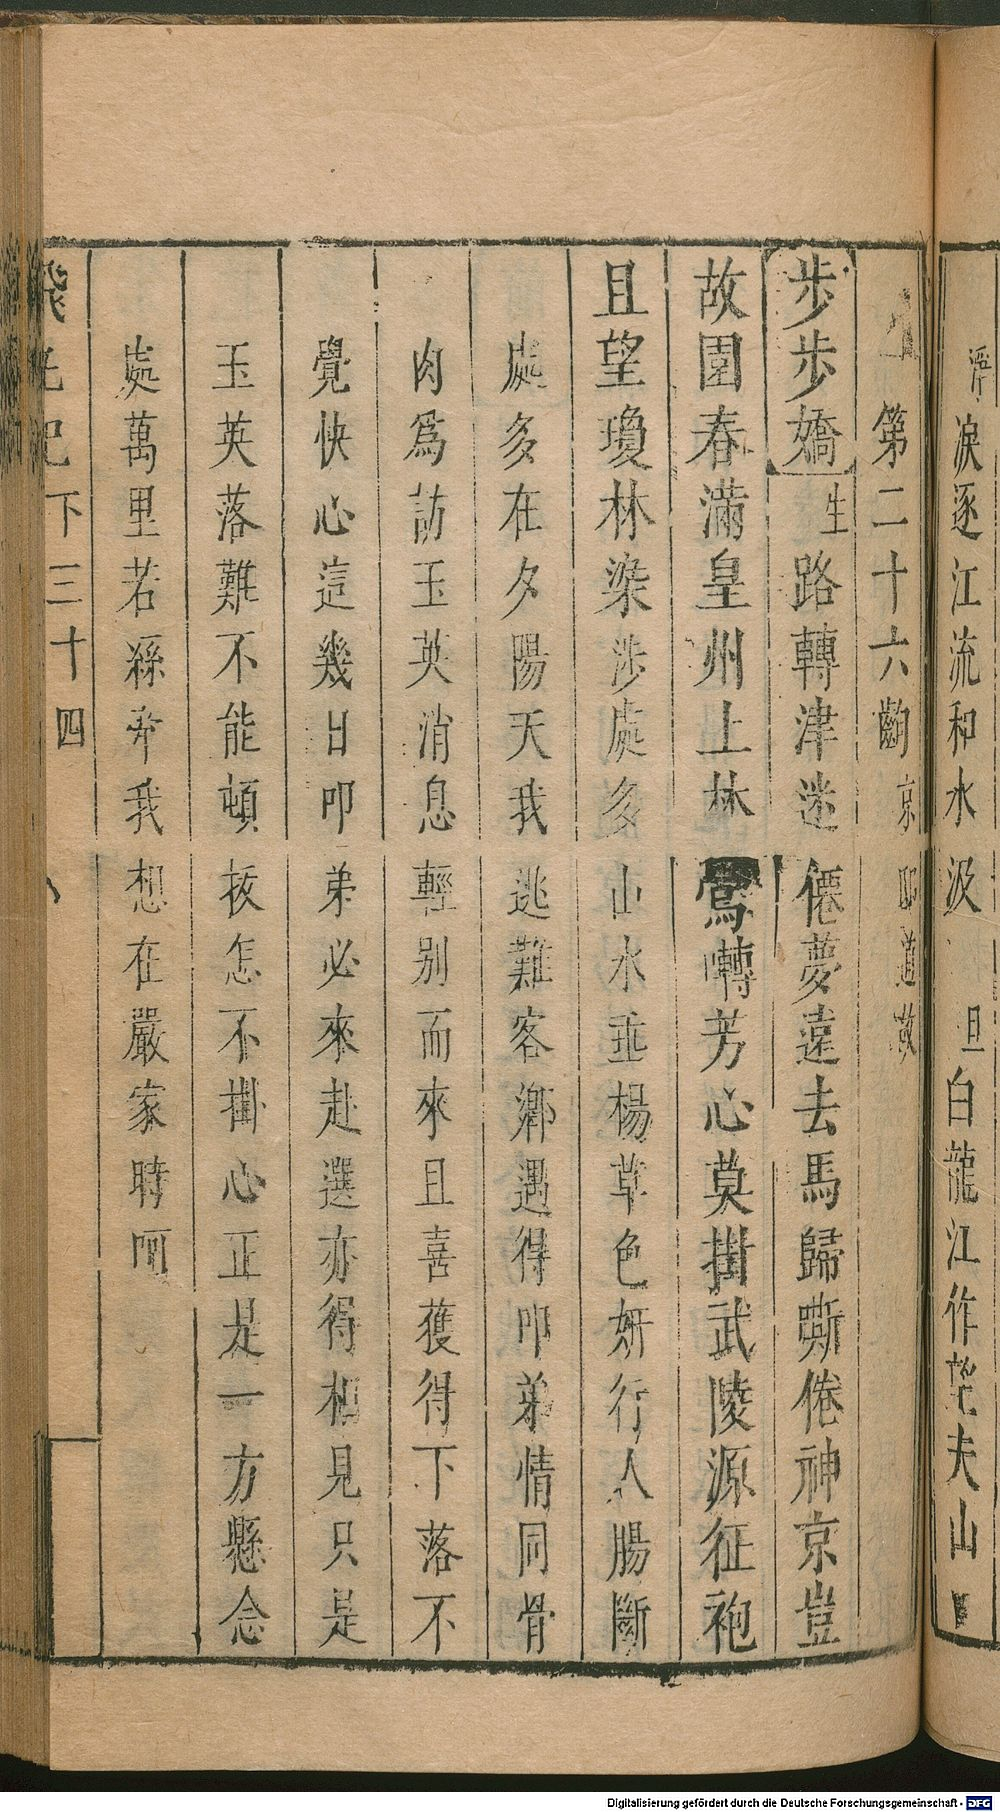 淚逐江流和水汲　旦白龍江作望夫山
第二十六齣　京邸道故
步步嬌　生路轉津迷僊夢遠去馬歸嘶倦神京豈
故園春滿皇州上林鶯囀芳心莫掛武陵源征袍
且望瓊林染涉處多山水垂楊草色妍行人腸斷
處多在夕陽天我逃難客鄉遇得叩弟情同骨
肉爲訪玉英消息輕别而來且喜獲得下落不
覺快心這幾日叩弟必來赴選亦得相見只是
玉英落難不能頓拔怎不掛心正是一方懸念
處萬里若孫奔我想在嚴家時呵
記下三十四
Digitalisierung gefördert durch die Deutsche Forschungsgemeinschaft - DFG